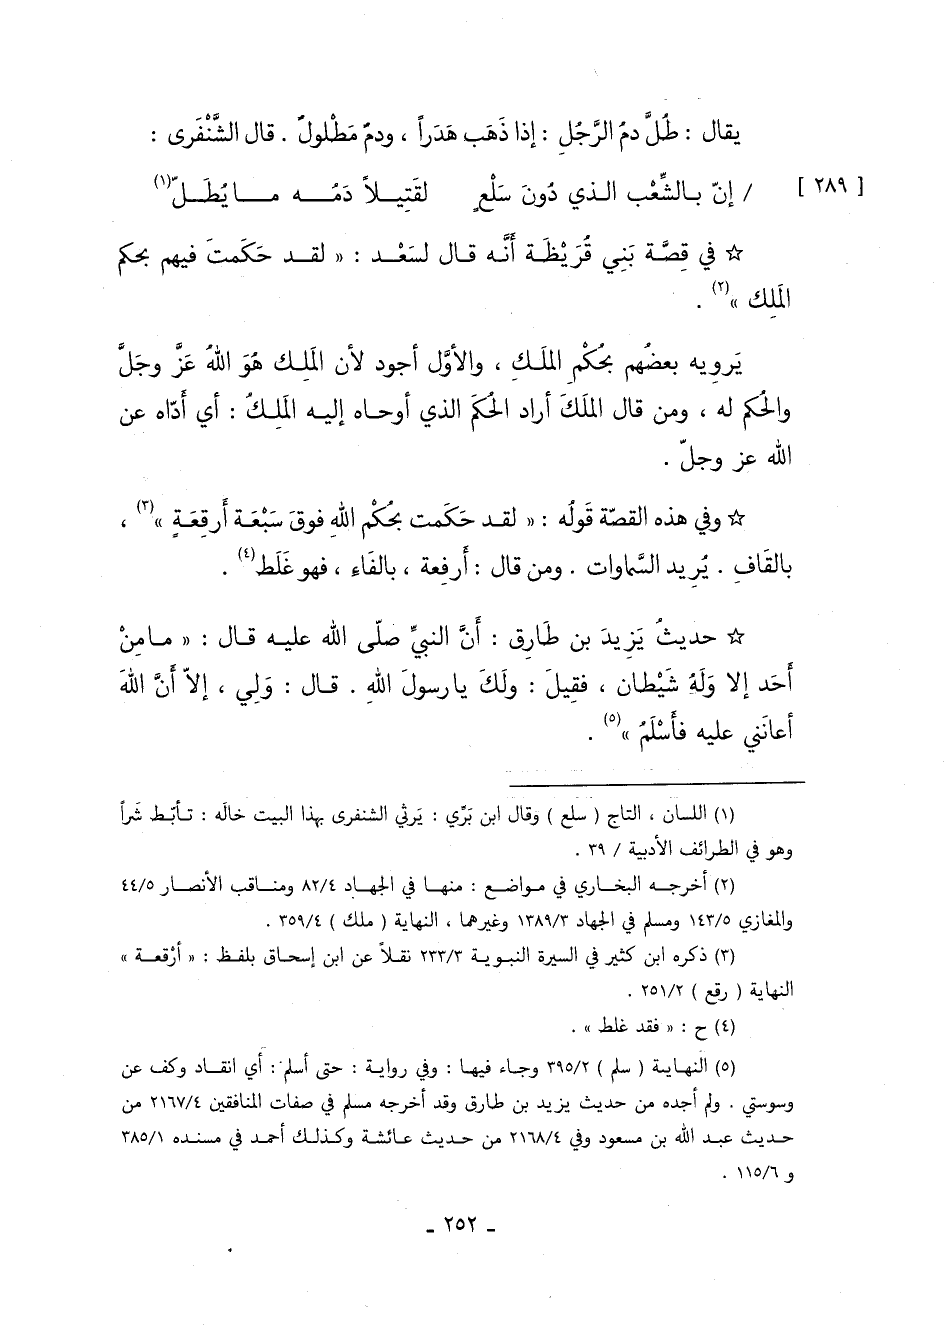 يقال : طُلَّ دمُ الرَّجُلِ : إذا ذَهَب هَدَراً ، ودمٌ مَطْلولٌ . قال الشَّنْفَرى :
[ ٢٨٩ ] / إنّ بـالشِّعْب الـذي دُونَ سَلْعٍ لقَتِيـلاً دَمُـه مـا يُطَـلّ(١)
☆ في قِصَّة بَنِي قُرَيْظَة أنَّه قال لسَعْد : « لقد حَكَمتَ فيهم بحكم
المَلِك »(٢) .
يَرويه بعضُهم بحُكْمِ المَلَكِ ، والأوَّل أجود لأن المَلِك هُوَ اللهُ عَزَّ وجَلَّ
والحُكم له ، ومن قال المَلَكَ أراد الحُكمَ الذي أوحاه إليه المَلَكُ : أي أدّاه عن
الله عز وجلّ .
☆ وفي هذه القصّة قَولُه : « لقد حَكَمت بحُكْم اللهِ فوقَ سَبْعَة أَرقِعَةٍ »(٣) ،
بالقَافِ . يُريد السَّماوات . ومن قال : أرفعة ، بالفَاء ، فهو غَلَط(٤) .
☆ حديثُ يَزِيدَ بن طَارق : أنَّ النبيَّ صلّى الله عليه قال : « مـامِنْ
أَحَد إلا وَلَهُ شَيْطان ، فقِيلَ : ولَكَ يارسولَ اللهِ . قـال : وَلِي ، إلاّ أنَّ اللهَ
أعانَني عليه فأَسْلَمُ »(٥) .
(١) اللسان ، التاج ( سلع ) وقال ابن بَرِّي : يَرثي الشنفرى بهذا البيت خالَه : تأبَّط شَراً
وهو في الطرائف الأدبية / ٣٩ .
(٢) أخرجه البخاري في مواضع : منها في الجهاد ٨٢/٤ ومناقب الأنصار ٤٤/٥
والمغازي ١٤٣/٥ ومسلم في الجهاد ١٣٨٩/٣ وغيرهما ، النهاية ( ملك ) ٣٥٩/٤ .
(٣) ذكره ابن كثير في السيرة النبوية ٢٣٣/٣ نقلاً عن ابن إسحاق بلفظ : « أرْقعة »
النهاية ( رقع ) ٢٥١/٢ .
(٤) ح : « فقد غلط » .
(٥) النهاية ( سلم ) ٣٩٥/٢ وجاء فيها : وفي رواية : حتى أسلم : أي انقاد وكف عن
وسوستي . ولم أجده من حديث يزيد بن طارق وقد أخرجه مسلم في صفات المنافقين ٢١٦٧/٤ من
حديث عبد الله بن مسعود وفي ٢١٦٨/٤ من حديث عائشة وكذلك أحمد في مسنده ٣٨٥/١
و ١١٥/٦ .
- ٢٥٢ -